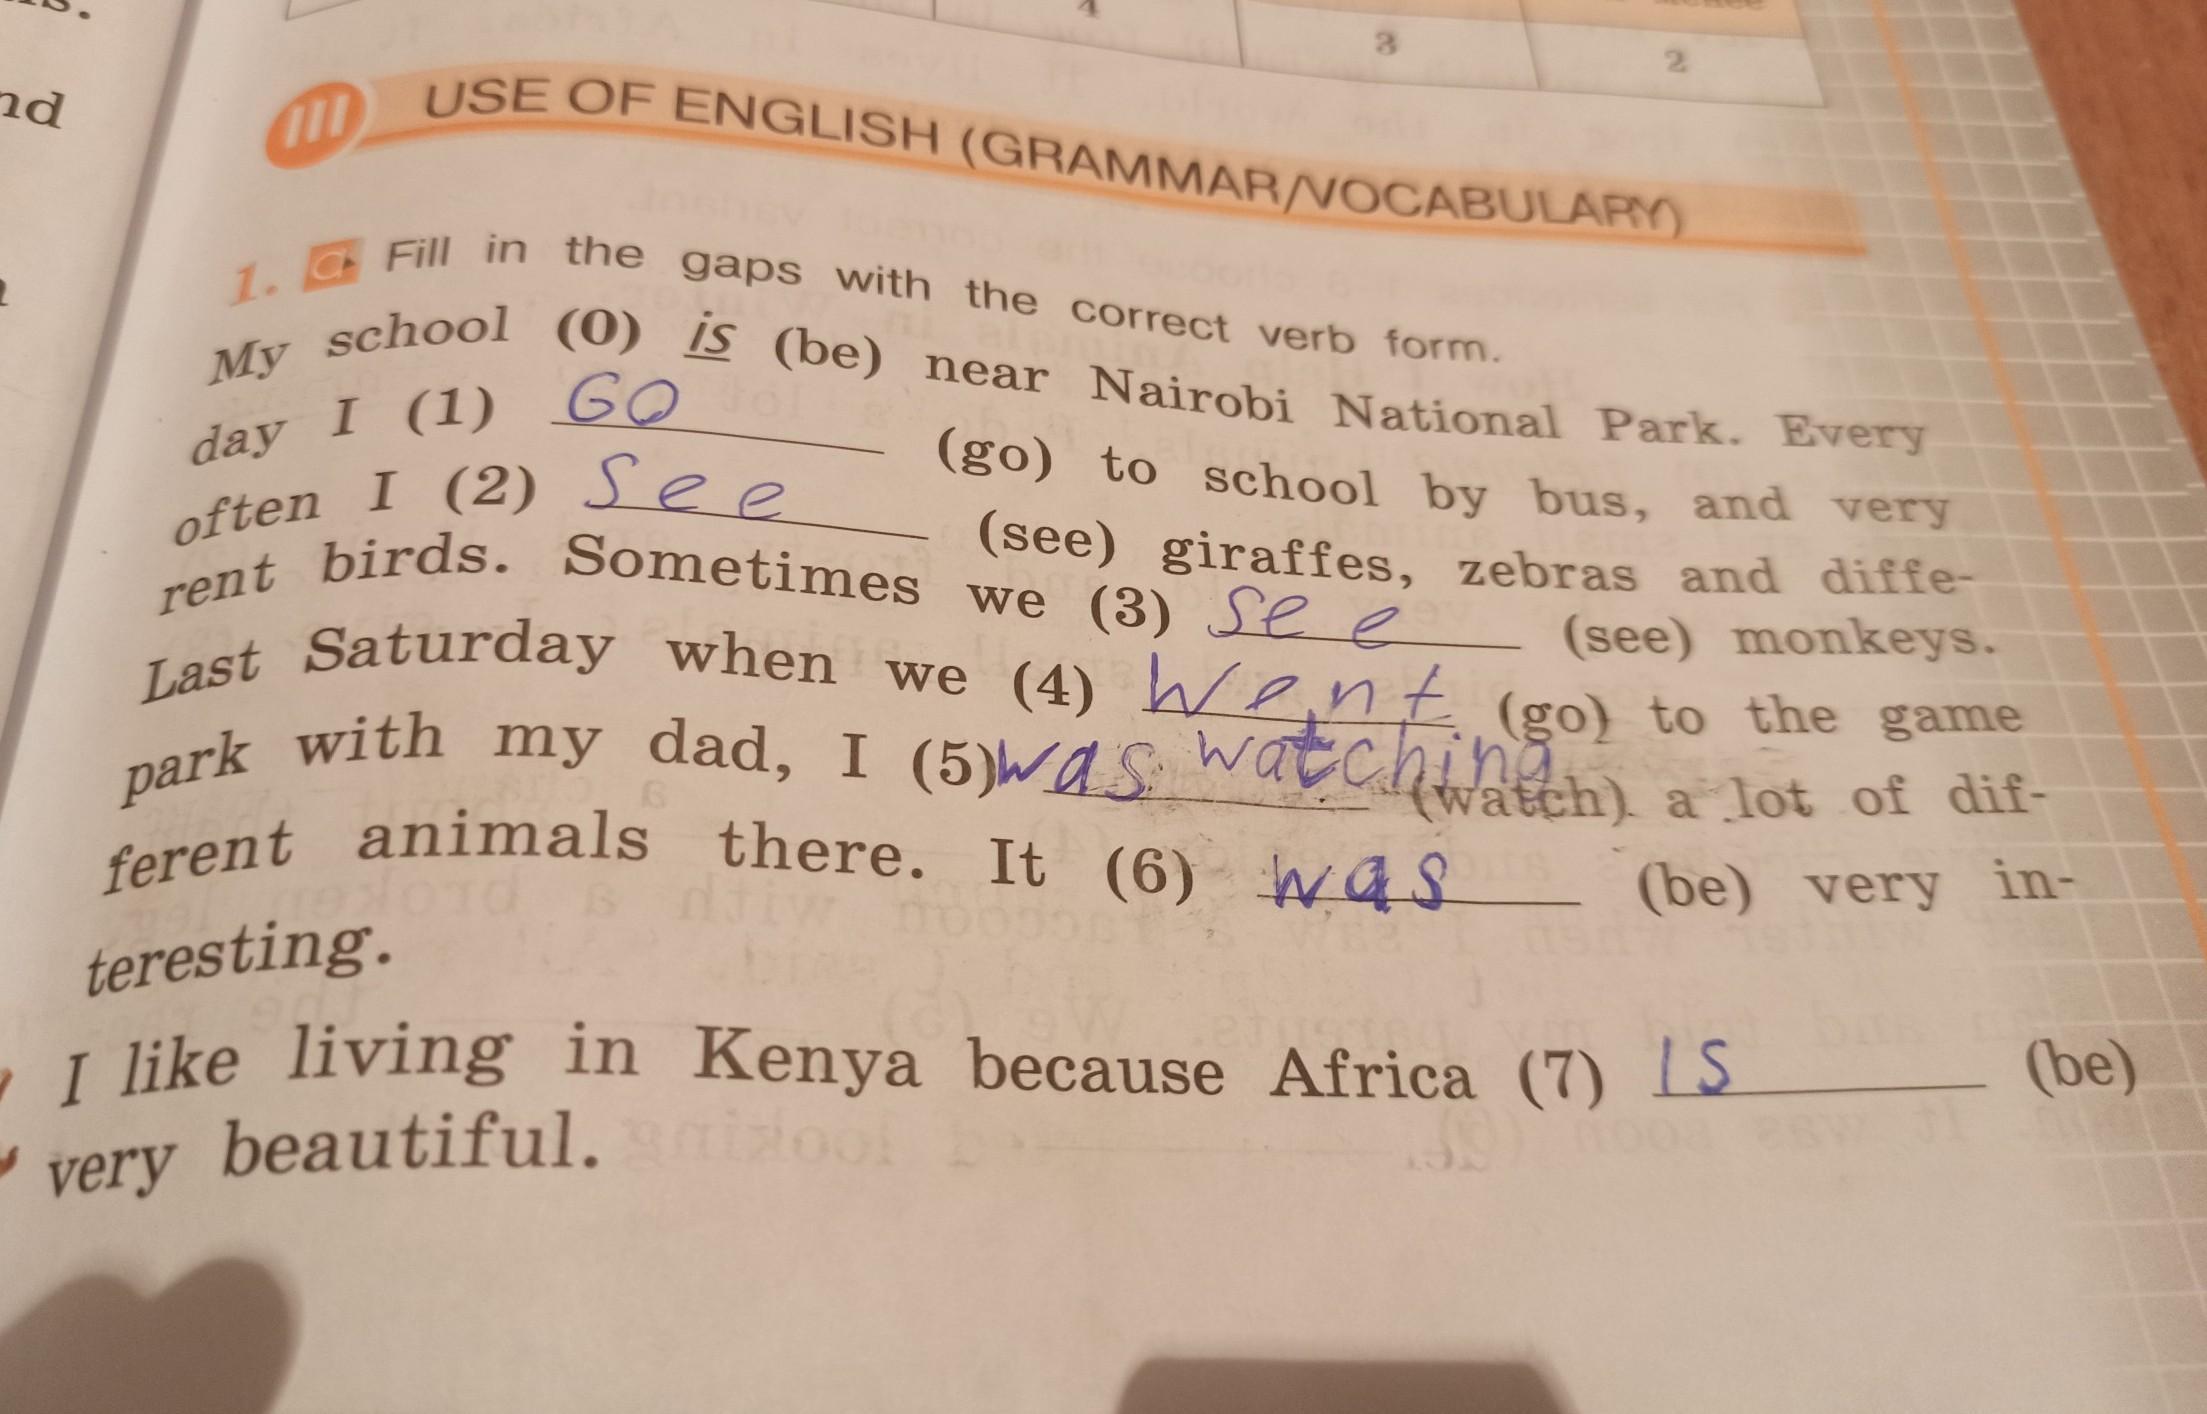 nd
4
3
2
III USE OF ENGLISH (GRAMMAR/VOCABULARY)
1. Fill in the gaps with the correct verb form.
My school (0) is (be) near Nairobi National Park. Every
day I (1) GO (go) to school by bus, and very
often I (2) See (see) giraffes, zebras and diffe-
rent birds. Sometimes we (3) see (see) monkeys.
Last Saturday when we (4) Went (go) to the game
park with my dad, I (5) was watching (watch) a lot of dif-
ferent animals there. It (6) was (be) very in-
teresting.
I like living in Kenya because Africa (7) IS (be)
very beautiful.